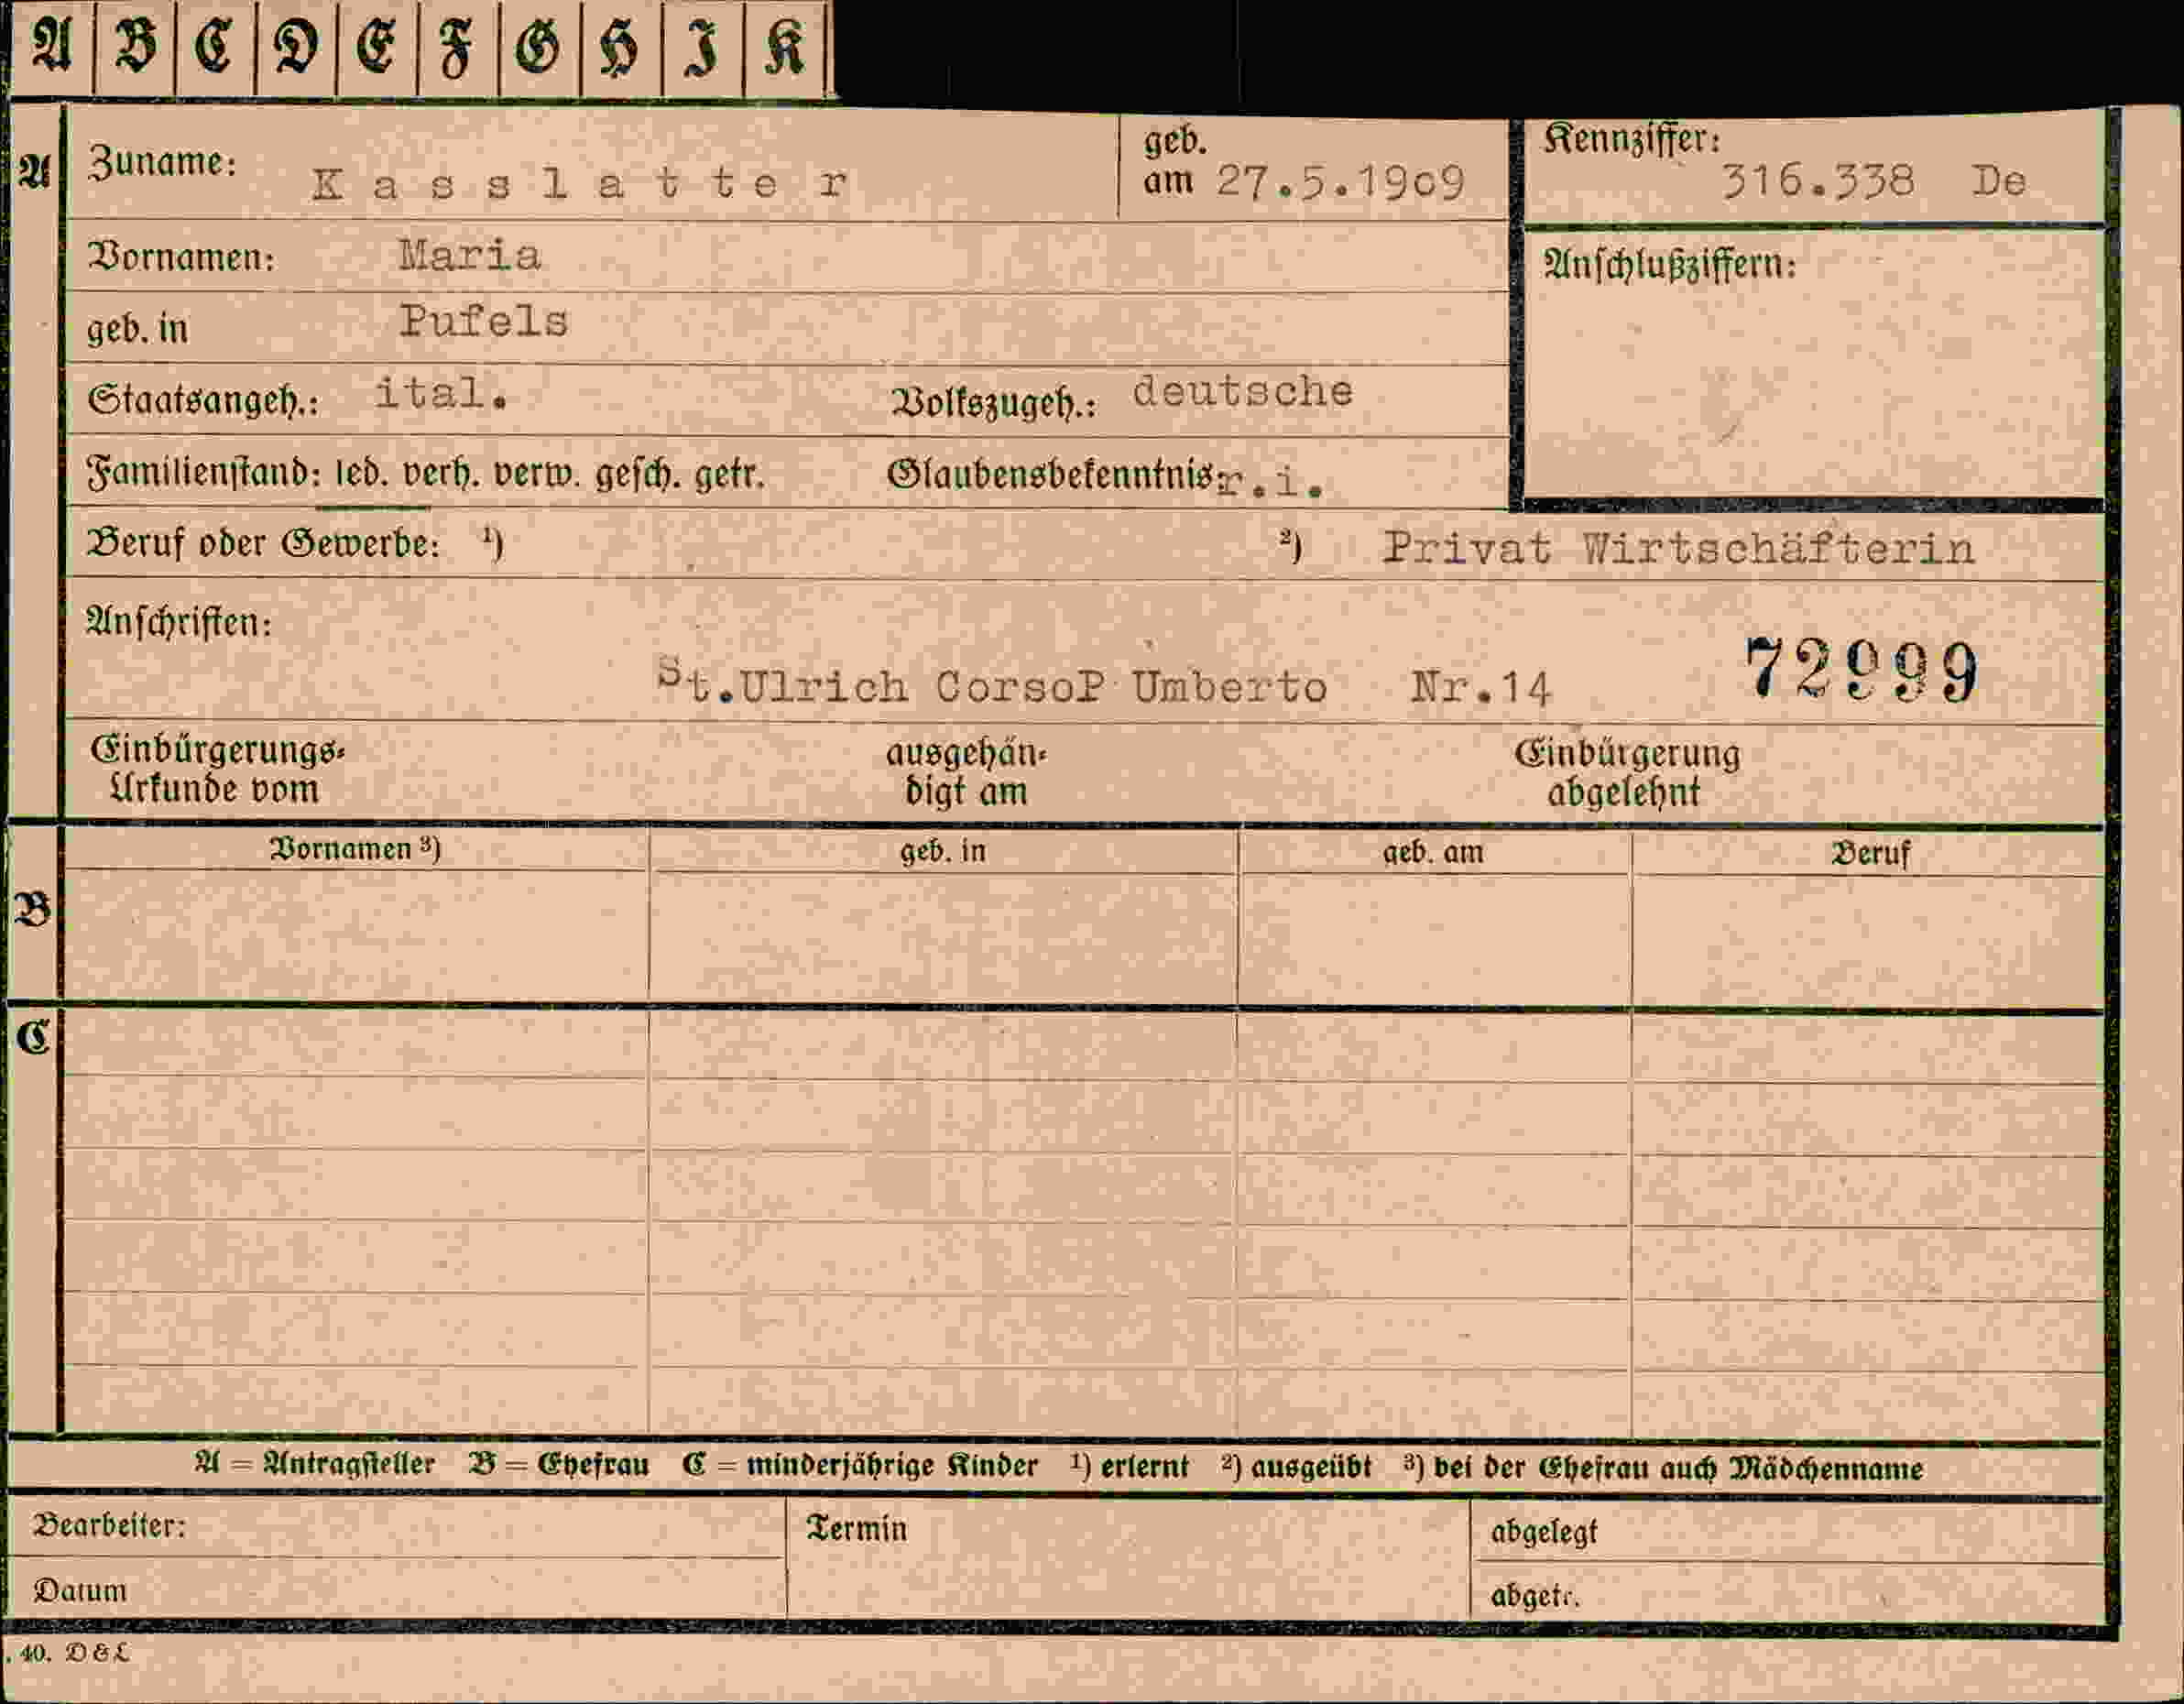 A B C D E F G H I K
A Zuname: Kasslatter geb. am 27.5.1909 Kennziffer: 316.338 De
Vornamen: Maria Anschlußziffern:
geb. in Pufels
Staatsangeh.: ital. Volkszugeh.: deutsche
Familienstand: led. verh. verw. gesch. getr. Glaubensbekenntnis: r.i.
Beruf oder Gewerbe: ¹) ²) Privat Wirtschäfterin
Anschriften:
St.Ulrich CorsoP Umberto Nr.14 72999
Einbürgerungs- ausgehän- Einbürgerung
Urkunde vom digt am abgelehnt
Vornamen ³) geb. in geb. am Beruf
B
C
A = Antragsteller B = Ehefrau C = minderjährige Kinder ¹) erlernt ²) ausgeübt ³) bei der Ehefrau auch Mädchenname
Bearbeiter: Termin abgelegt
Datum abgetr.
. 40. D & L